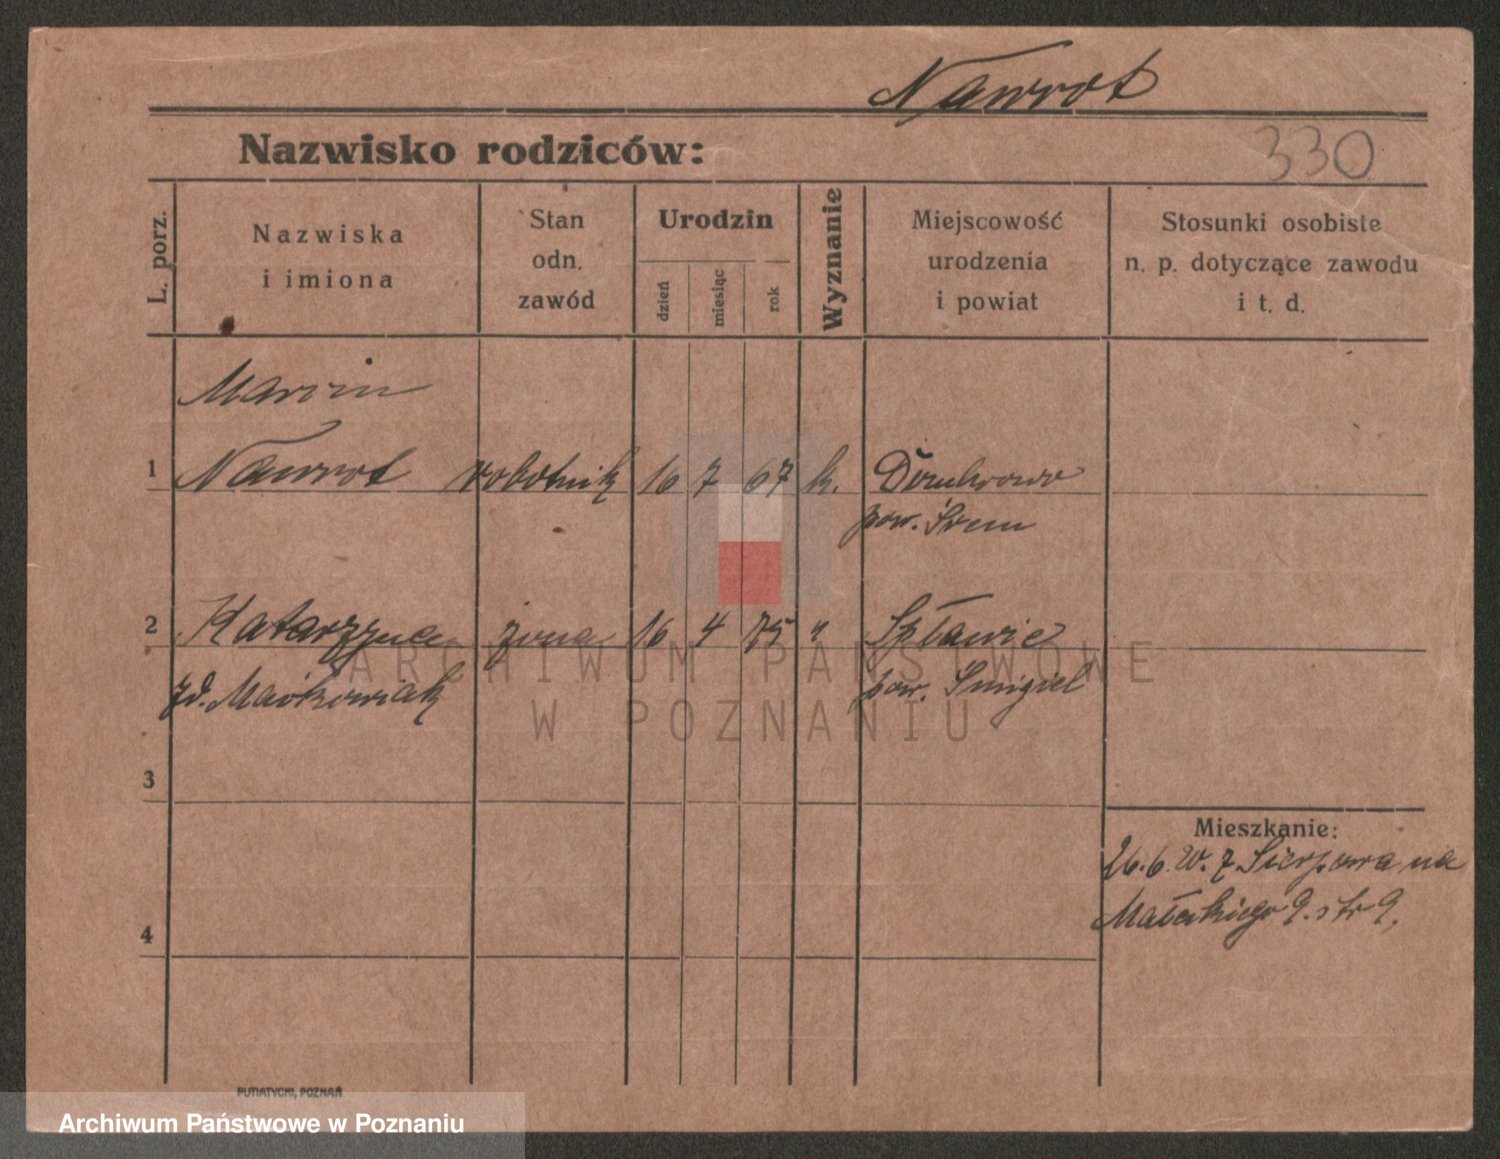 Nawrot
Nazwisko rodziców:
330
L. porz.
Nazwiska
i imiona
Stan
odn.
zawód
Urodzin
dzień
miesiąc
rok
Wyznanie
Miejscowość
urodzenia
i powiat
Stosunki osobiste
n. p. dotyczące zawodu
i t. d.
Marcin
1 Nawrot robotnik 16 7 67 k. Dombrowo
pow. Śrem
2 Katarzyna żona 16 4 75 " Spławie
zd. pow. Śmigiel
ARCHIWUM PAŃSTWOWE
W POZNANIU
3
Mieszkanie:
26.6. z Sierpowa na
Małeckiego 9. str 9,
4
PUTIATYCKI, POZNAŃ
Archiwum Państwowe w Poznaniu